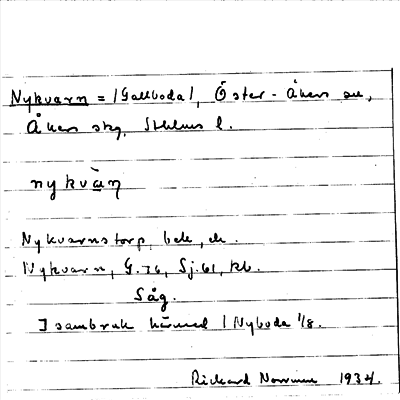 Nykvarn = /Gallboda/, Öster-Åkers sn,
Åkers skg, Sthlms l.
nykvàɳ
Nykvarnstorp, bek, dr.
Nykvarn, G. 76, Sj. 61, kb.
Såg.
I sambruk härmed / Nyboda 1/8.
Rickard 1934.